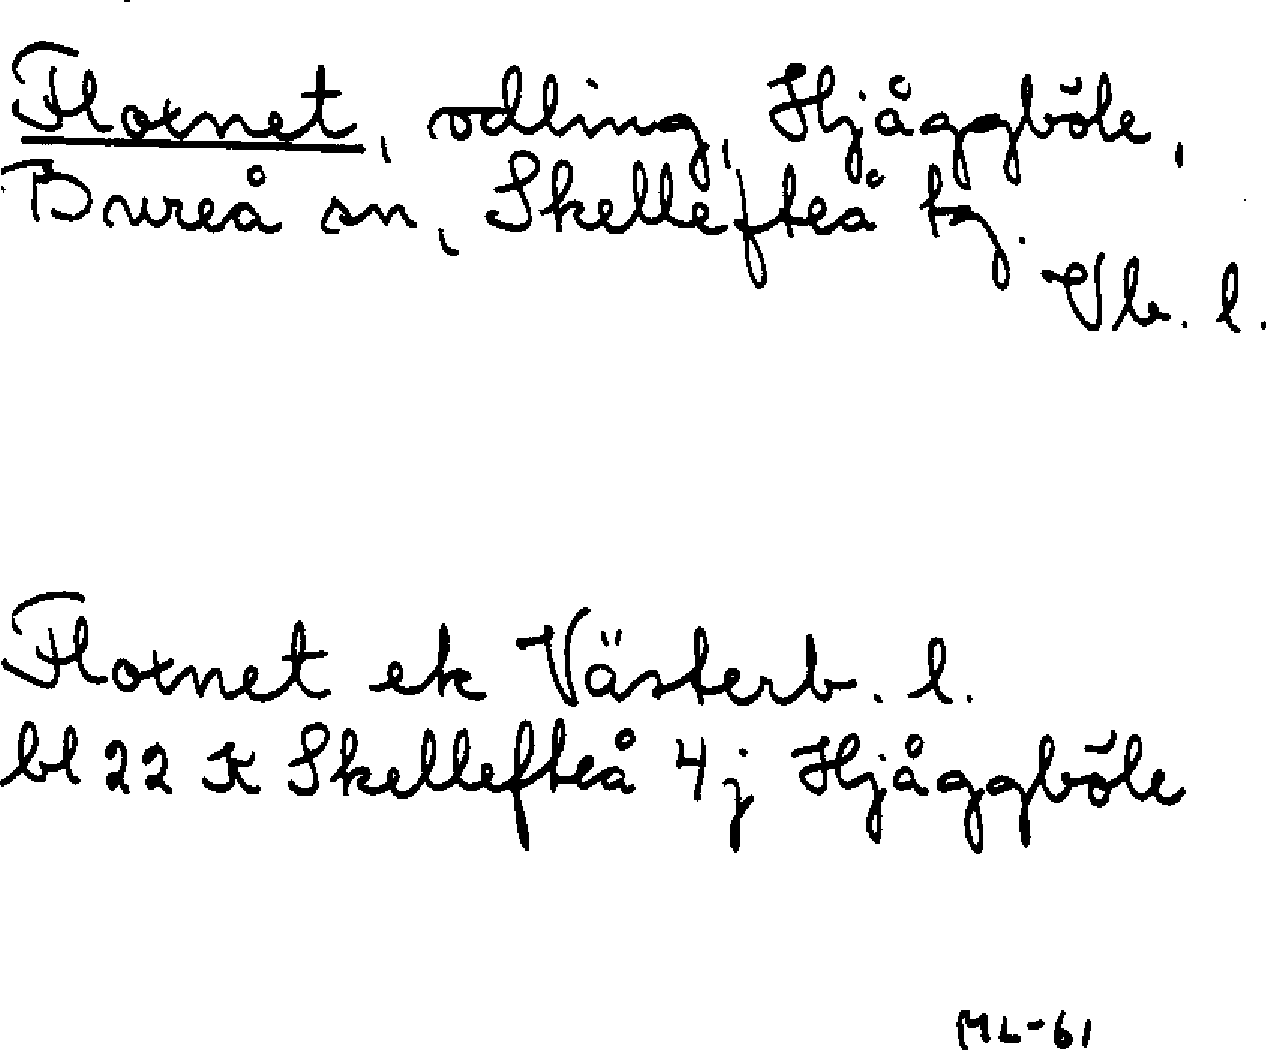 Flornet, odling, Hjåggböle,
Bureå sn, Skellefteå tg.
Vb. l.
Flornet ek Västerb. l.
bl 22 K Skellefteå 4 j Hjåggböle
ML-61